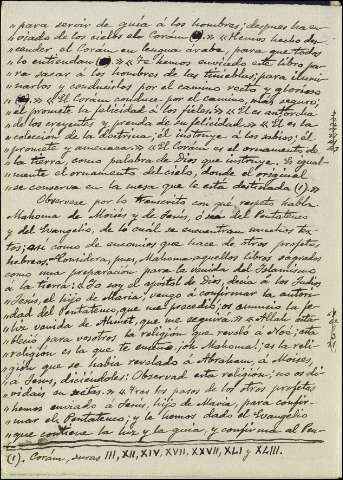 "para servir de guía á los hombres; despues ha en-
"viado de los cielos el Corán." "Hemos hecho des-
"cender el Corán en lengua árabe, para que todos
"lo entiendan." "Te hemos enviado este libro pa-
"ra sacar á los hombres de las tinieblas, para ilumi-
"narlos y conducirlos por el camino recto y glorioso
" "El Corán conduce por el camino más seguro;
"él promete la felicidad á los fieles." "El es antorcha
"de los creyentes y prenda de su felicidad." "El es la
"colección de la doctrina; él instruye á los sabios; él
"promete y amenaza." "El Corán es el ornamento de
"la tierra, como palabra de Dios que instruye. Es igual-
"mente el ornamento del cielo, donde el original
"se conserva en la mesa que le está destinada (1)."
Obsérvese por lo transcrito con qué respeto habla
Mahoma de Moisés y de Jesús, ó sea del Pentateuco
y del Evangelio, de lo cuál se encuentran muchos tex-
tos; así como de encomios que hace de otros profetas
hebreos. Considera, pues, Mahoma aquellos libros sagrados
como una preparación para la venida del Islamismo
á la tierra: "Yo soy el apostol de Dios, decía á los Judíos
"Jesus, el hijo de María; vengo á confirmar la autori-
dad del Pentateuco, que me precedió; os anuncio la fe-
liz venida de Ahmet, que me seguirá." "Allah esta-
bleció para vosotros la religión que reveló á Noé; esta
religión es la que te enseña, ¡oh Mahoma!; es la reli-
gión que se había revelado á Abraham, á Moisés,
á Jesus, diciéndoles: Observad esta religión; no os di-
vidais en sectas." "Tras los pasos de los otros profetas
"hemos enviado á Jesus, hijo de María, para confir-
"mar el Pentateuco; y le hemos dado el Evangelio
"que contiene la luz y la guía, y confirma el Pen-
(1). Corán, suras III, XII, XIV, XVII, XXVII, XLI y XLIII.